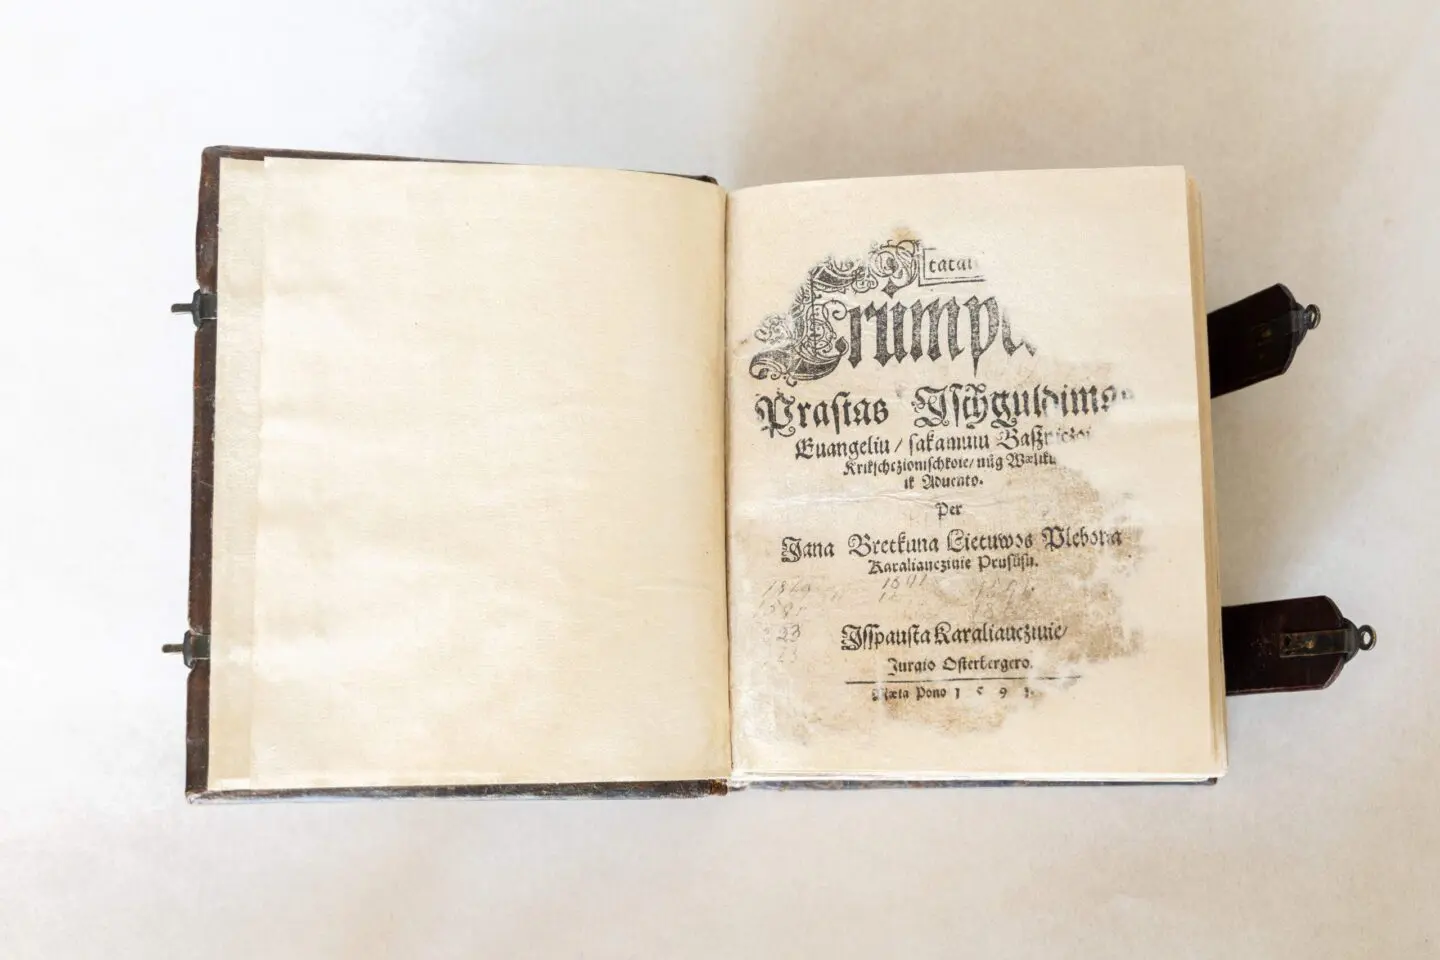 Trumpa
Prastas Ischguldima
Euangeliu / sakamuiu Baßniczoi
Krikschczionischkoie / nůg Wæliku
ik Aduento.
Per
Jana Bretkuna Lietuwos Plebona
Karaliaucziuie Prusůsu.
1891
23
Isspausta Karaliaucziuie /
Jurgio Osterbergero.
Mæta Pono 1 5 9 1